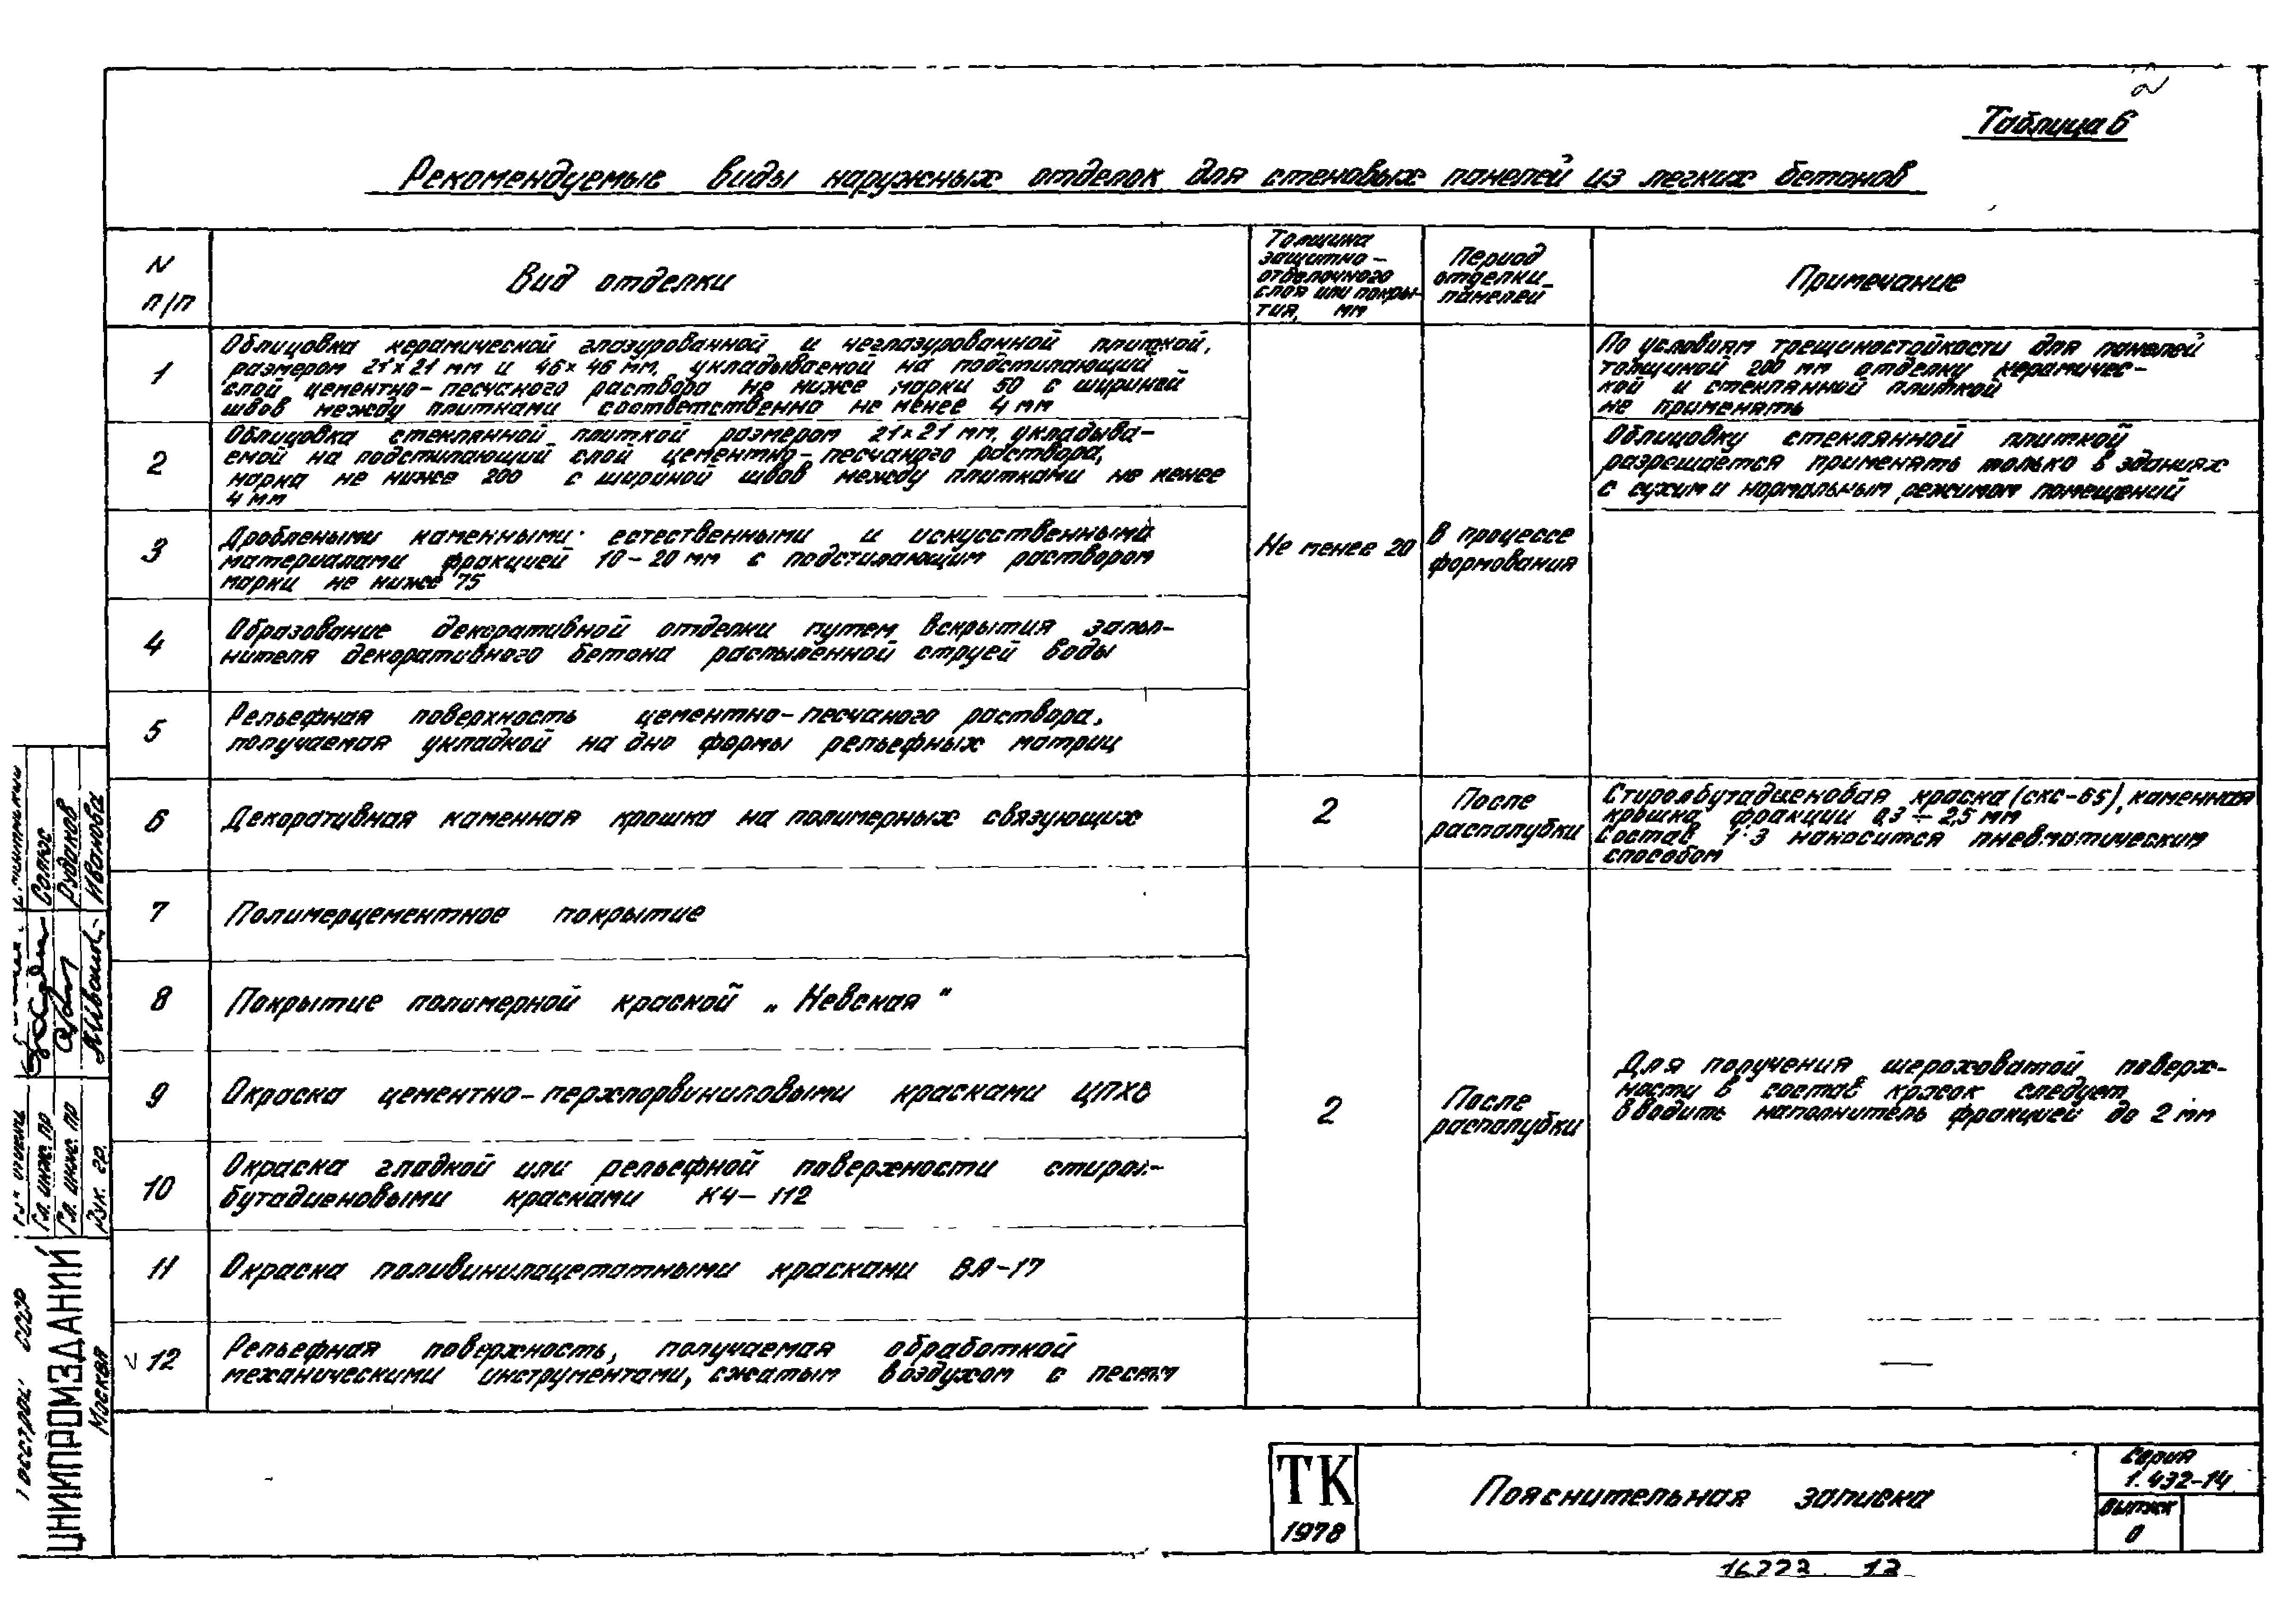 Таблица 6
Рекомендуемые виды наружных отделок для стеновых панелей из легких бетонов
N
п/п
Вид отделки
Толщина
защитно-
отделочного
слоя или покры-
тия, мм
Период
отделки
панелей
Примечание
1
Облицовка керамической глазурованной и неглазурованной плиткой,
размером 21×21 мм и 46×46 мм, укладываемой на подстилающий
слой цементно-песчаного раствора не ниже марки 50 с шириной
швов между плитками соответственно не менее 4 мм
По условиям трещиностойкости для панелей
толщиной 200 мм отделку керамичес-
кой и стеклянной плиткой
не применять
2
Облицовка стеклянной плиткой размером 21×21 мм, укладыва-
емой на подстилающий слой цементно-песчаного раствора,
марка не ниже 200 с шириной швов между плитками не менее
4 мм
Облицовку стеклянной плиткой
разрешается применять только в зданиях
с сухим и нормальным режимом помещений
3
Дроблеными каменными естественными и искусственными
материалами фракцией 10-20 мм с подстилающим раствором
марки не ниже 75
Не менее 20
В процессе
формования
4
Образование декоративной отделки путем вскрытия запол-
нителя декоративного бетона распыленной струей воды
5
Рельефная поверхность цементно-песчаного раствора,
получаемая укладкой на дно формы рельефных матриц
6
Декоративная каменная крошка на полимерных связующих
2
После
распалубки
Стиролбутадиеновая краска (СКС-65), каменная
крошка фракции 0,3 ÷ 2,5 мм
Состав 1:3 наносится пневматическим
способом
7
Полимерцементное покрытие
8
Покрытие полимерной краской „Невская"
9
Окраска цементно-перхлорвиниловыми красками ЦПХВ
2
После
распалубки
Для получения шероховатой поверх-
ности в состав красок следует
вводить наполнитель фракцией до 2 мм
10
Окраска гладкой или рельефной поверхности стирол-
бутадиеновыми красками КЧ-112
11
Окраска поливинилацетатными красками ВА-17
12
Рельефная поверхность, получаемая обработкой
механическими инструментами, сжатым воздухом с песком
—
ТК
1978
Пояснительная записка
Серия
1.432-14
Выпуск
0
13
Госстрой СССР
ЦНИИПРОМЗДАНИЙ
Москва
Гл. инж. пр
Гл. инж. пр
Рук. гр.
Рудаков
Иванова